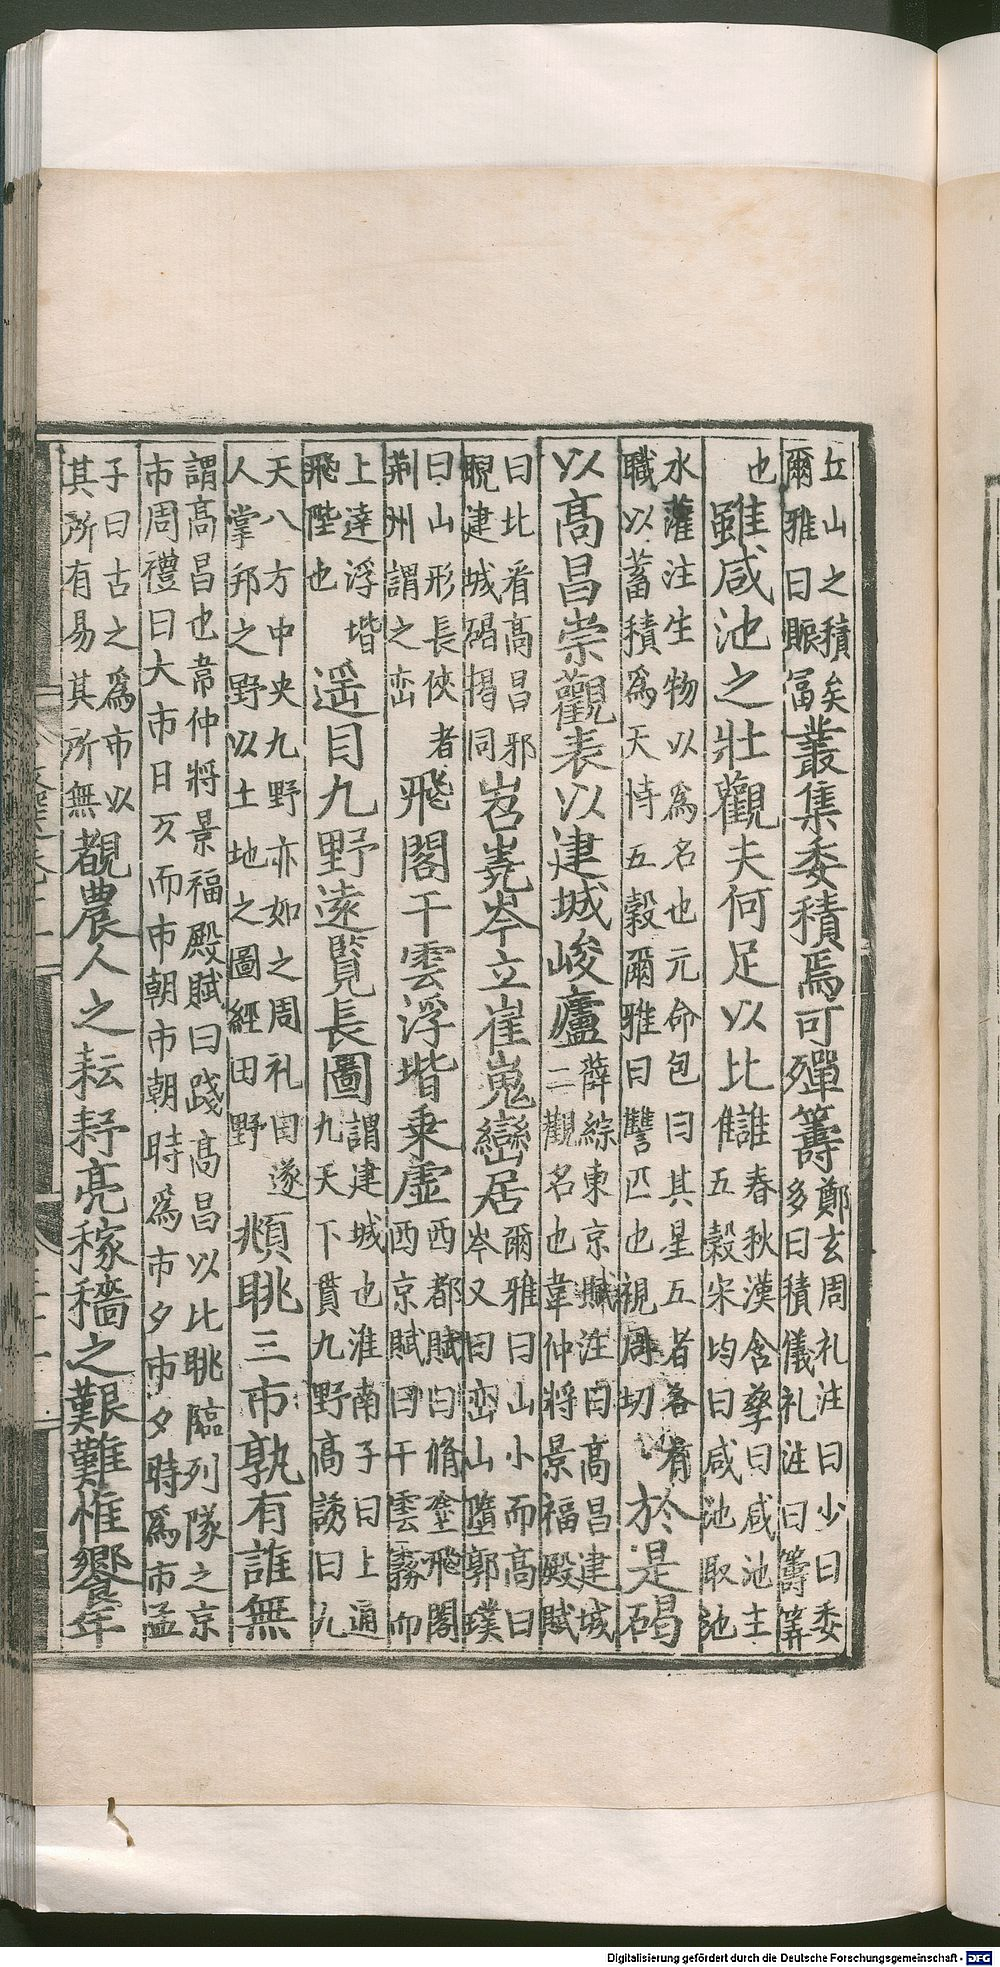 丘山之積矣
爾雅曰賑冨叢集委積焉可殫籌鄭玄周礼注曰少曰委
多曰積儀礼注曰籌筭
也雖咸池之壯觀夫何足以比讎春秋漢含孳曰咸池主
五穀宋均曰咸池取池
水灌注生物以爲名也元命包曰其星五者各有
職以蓄積爲天恃五穀爾雅曰讐匹也視周切於是碣
以高昌崇觀表以建城峻廬薛綜東京賦注曰高昌建城
二觀名也韋仲將景福殿賦
曰北看高昌邪
睨建城碣揭同岧嶤岑立崔嵬巒居爾雅曰山小而高曰
岑又曰巒山墮郭璞
曰山形長狹者
荆州謂之巒飛閣干雲浮堦乗虚西都賦曰脩塗飛閣
西京賦曰干雲霧而
上達浮堦
飛陛也遥目九野遠覧長圖謂建城也淮南子曰上通
九天下貫九野高誘曰九
天八方中央九野亦如之周礼曰遂
人掌邦之野以土地之圖經田野頫眺三市孰有誰無
謂高昌也韋仲將景福殿賦曰踐高昌以北眺臨列隊之京
市周禮曰大市日昃而市朝市朝時爲市夕市夕時爲市孟
子曰古之爲市以
其所有易其所無覩農人之耘耔亮稼穡之艱難惟饗年
Digitalisierung gefördert durch die Deutsche Forschungsgemeinschaft - DFG